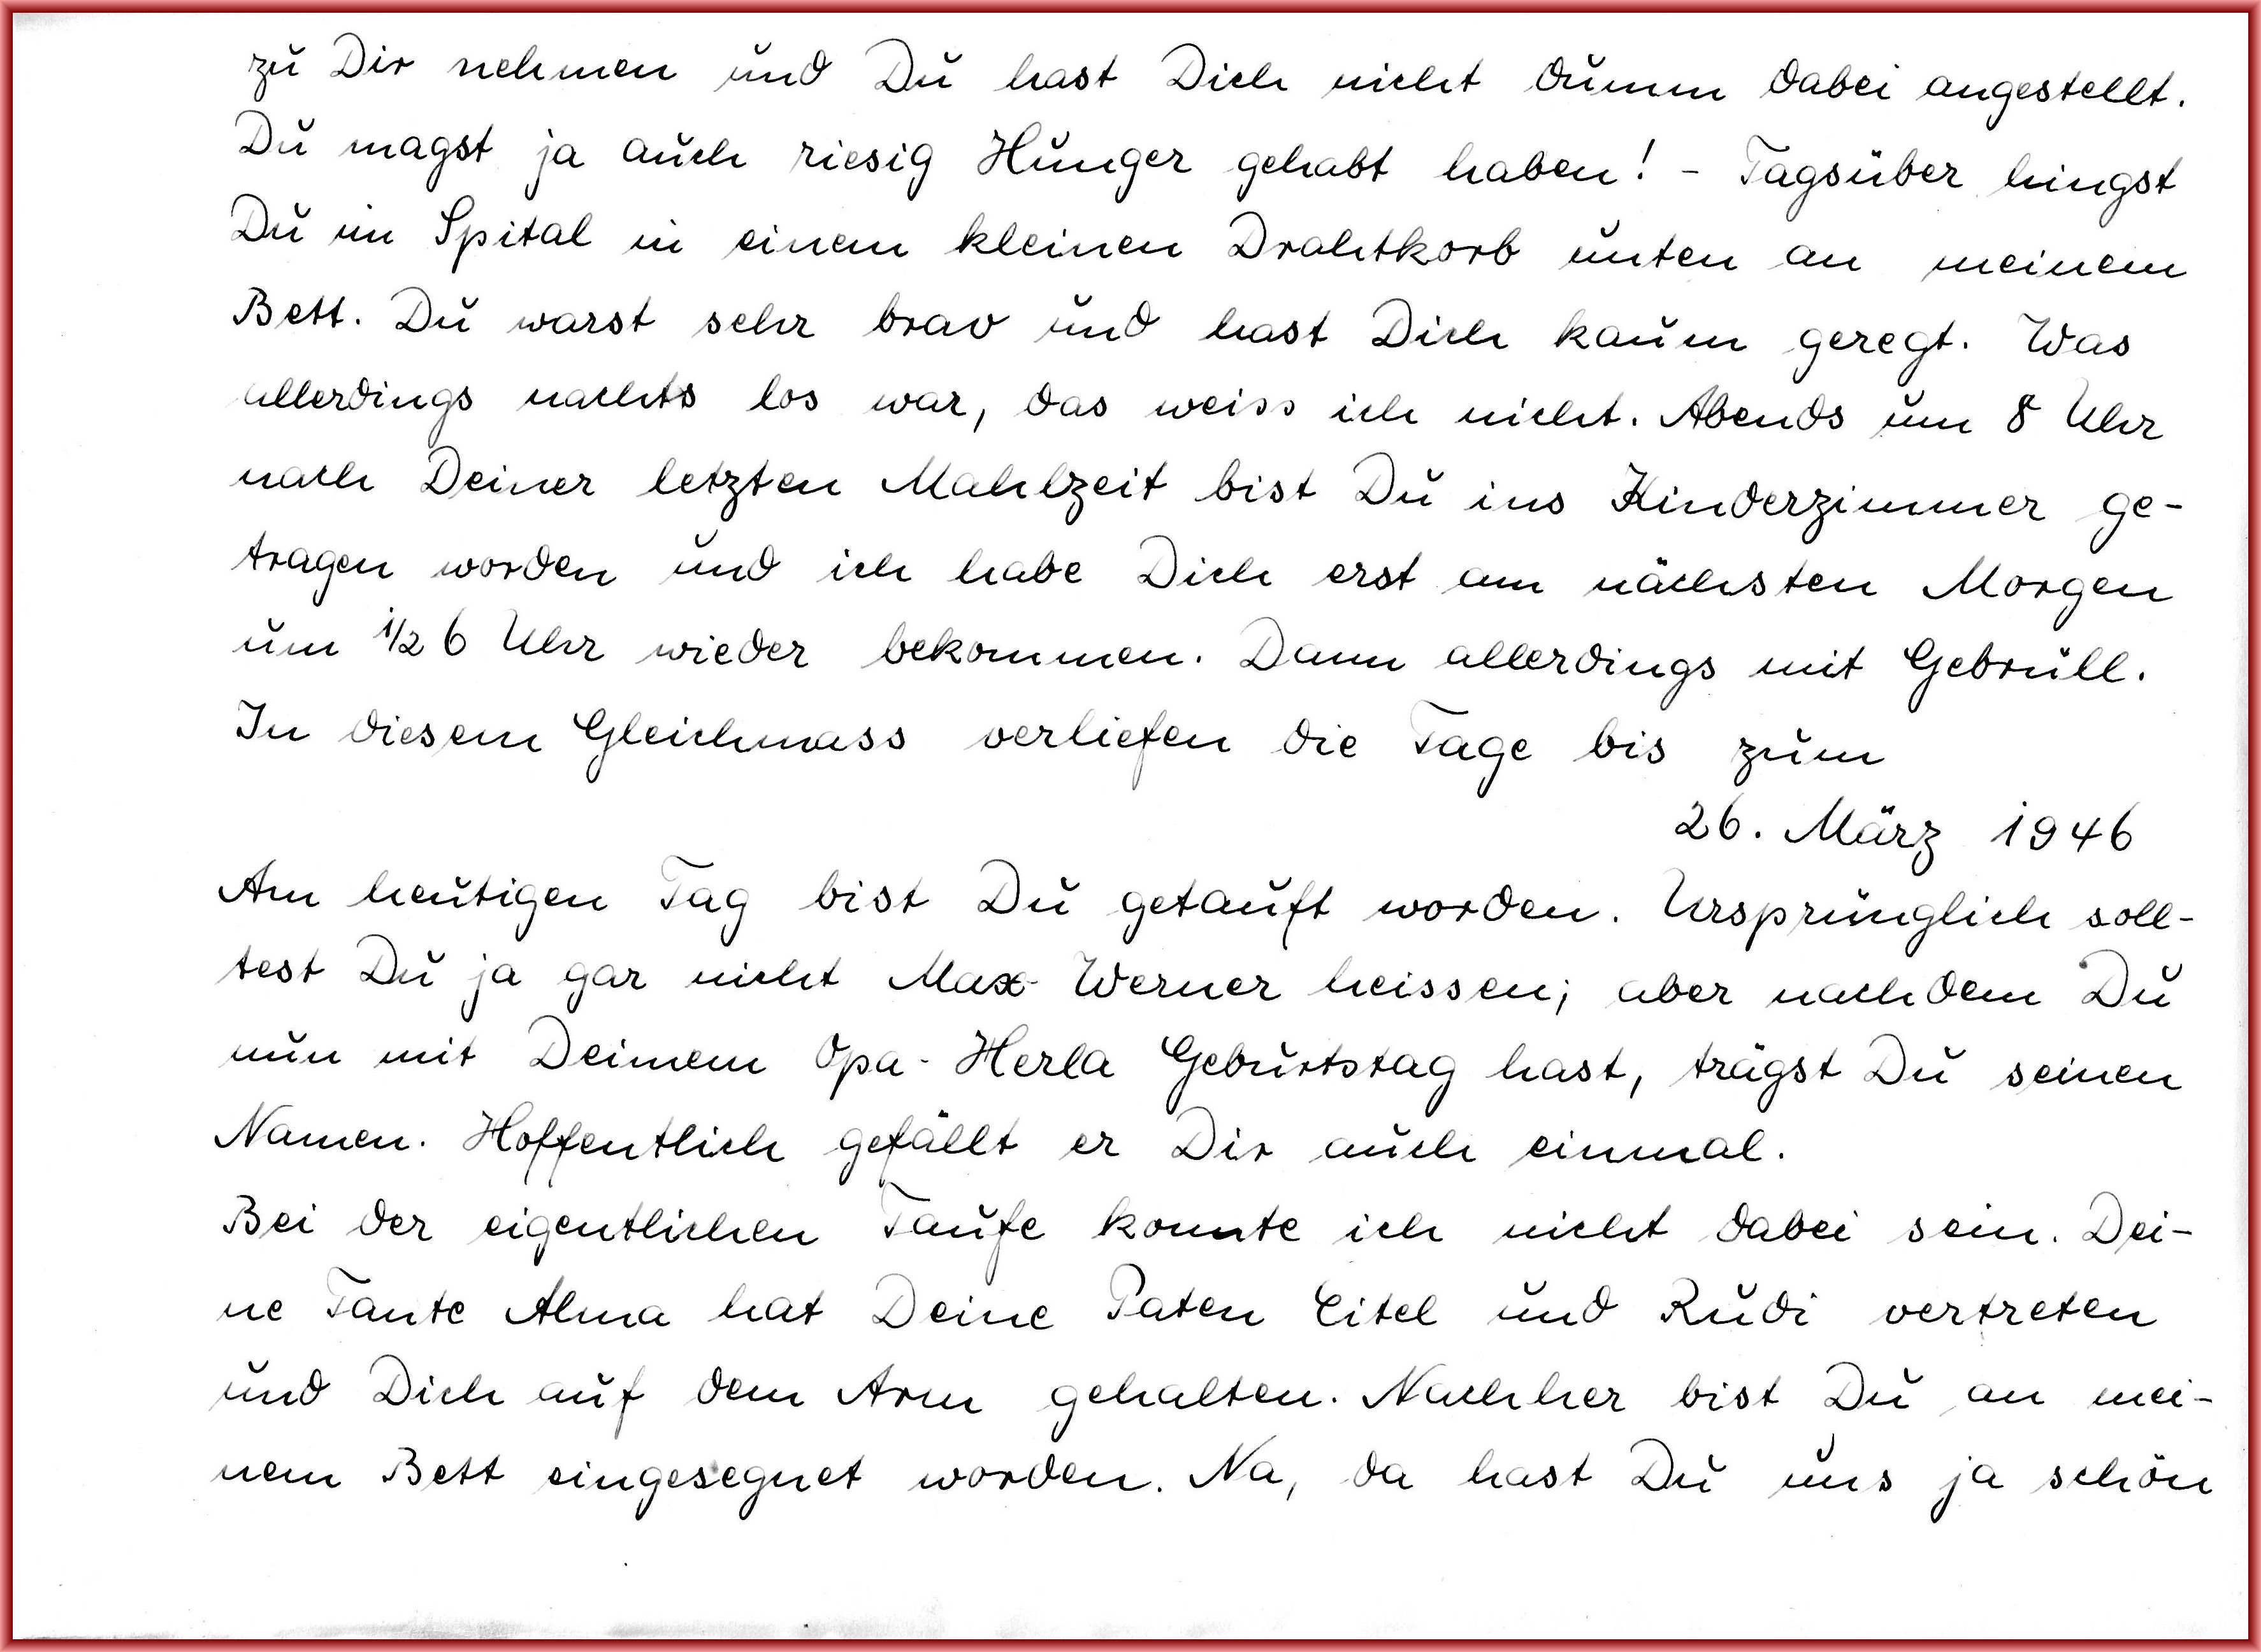 zu Dir nehmen und Du hast Dich nicht dumm dabei angestellt.
Du magst ja auch riesig Hunger gehabt haben! - Tagsüber hingst
Du im Spital in einem kleinen Drahtkorb unten an meinem
Bett. Du warst sehr brav und hast Dich kaum geregt. Was
allerdings nachts los war, das weiss ich nicht. Abends um 8 Uhr
nach Deiner letzten Mahlzeit bist Du ins Kinderzimmer ge-
tragen worden und ich habe Dich erst am nächsten Morgen
um 1/2 6 Uhr wieder bekommen. Dann allerdings mit Gebrüll.
In diesem Gleichmass verliefen die Tage bis zum
26. März 1946
Am heutigen Tag bist Du getauft worden. Ursprünglich soll-
test Du ja gar nicht Max-Werner heissen; aber nachdem Du
nun mit Deinem Opa-Herla Geburtstag hast, trägst Du seinen
Namen. Hoffentlich gefällt er Dir auch einmal.
Bei der eigentlichen Taufe konnte ich nicht dabei sein. Dei-
ne Tante Alma hat Deine Paten Eitel und Rudi vertreten
und Dich auf dem Arm gehalten. Nachher bist Du an mei-
nem Bett eingesegnet worden. Na, da hast Du uns ja schön